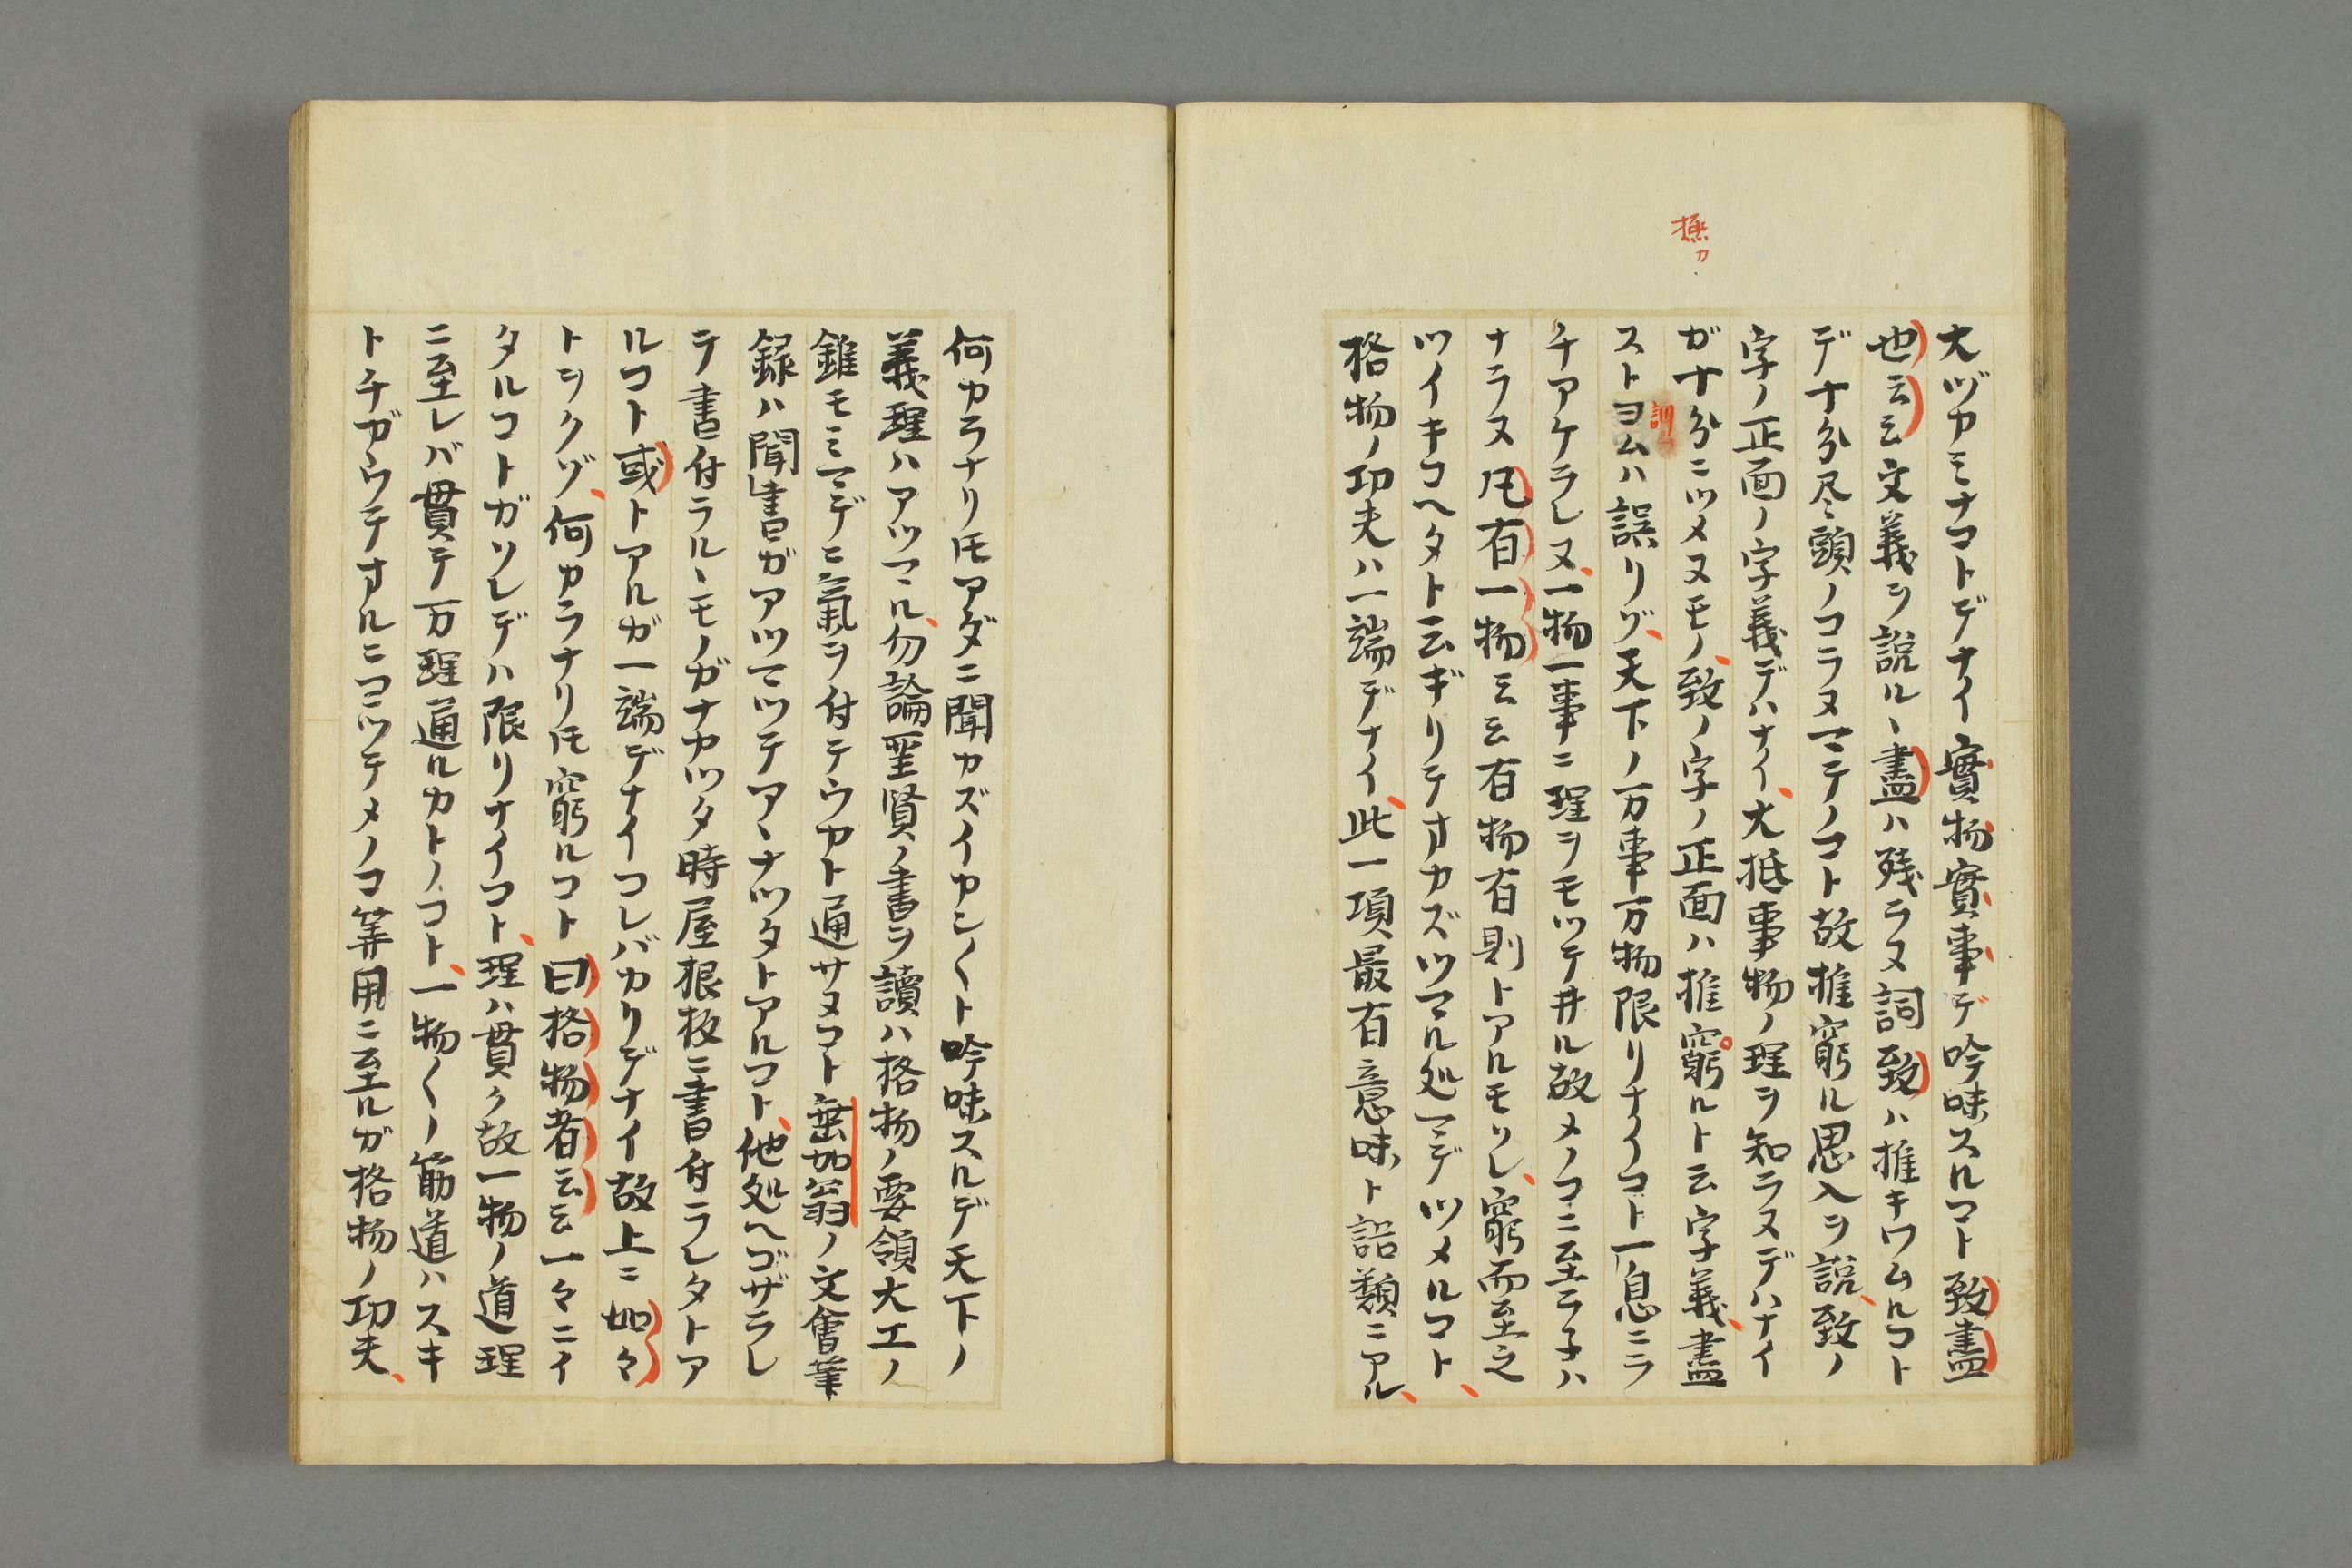 撫カ
大ヅカミナコトデナイ實物實事デ吟味スルコト致盡
也云云文義ヲ説ル丶盡ハ残ラヌ詞致ハ推キワムルコト
デ十分尽頭ノコラヌマテノコト故推窮ル思入ヲ説致ノ
字ノ正面ノ字義デハナイ大抵事物ノ理ヲ知ラヌデハナイ
ガ十分ニツメヌモノ致ノ字ノ正面ハ推窮ルト云字義盡
ストヨムハ誤リゾ天下ノ万事万物限リナイコト一息ニラ
訓
チアケラレヌ一物一事ニ理ヲモツテ井ル故メノコニ至ラ子ハ
ナラヌ凡有一物云云有物有則トアルモソレ窮而至之
ツイキコヘタト云ギリテオカズツマル処マデツメルコト
格物ノ功夫ハ一端デナイ此一項最有意味ト語類ニアル
何カラナリ𪜈アダニ聞カズイカン〱ト吟味スルデ天下ノ
義理ハアツマル勿論聖賢ノ書ヲ讀ハ格物ノ要領大工ノ
錐モミマデニ氣ヲ付テウカト通サヌコト無加翁ノ文會筆
録ハ聞書ガアツマツテア丶ナツタトアルコト他処ヘゴザラレ
テ書付ラル丶モノガナカツタ時屋根板ニ書付ラレタトア
ルコト或トアルガ一端デナイコレバカリデナイ故上ニ如々
トヲクゾ何カラナリ𪜈窮ルコト曰格物者云云一々ニイ
タルコトガソレデハ限リナイコト理ハ貫ク故一物ノ道理
ニ至レバ貫テ万理通ルカトノコト一物〱ノ筋道ハスキ
トチガウテオルニコミツテメノコ筭用ニ至ルガ格物ノ功夫